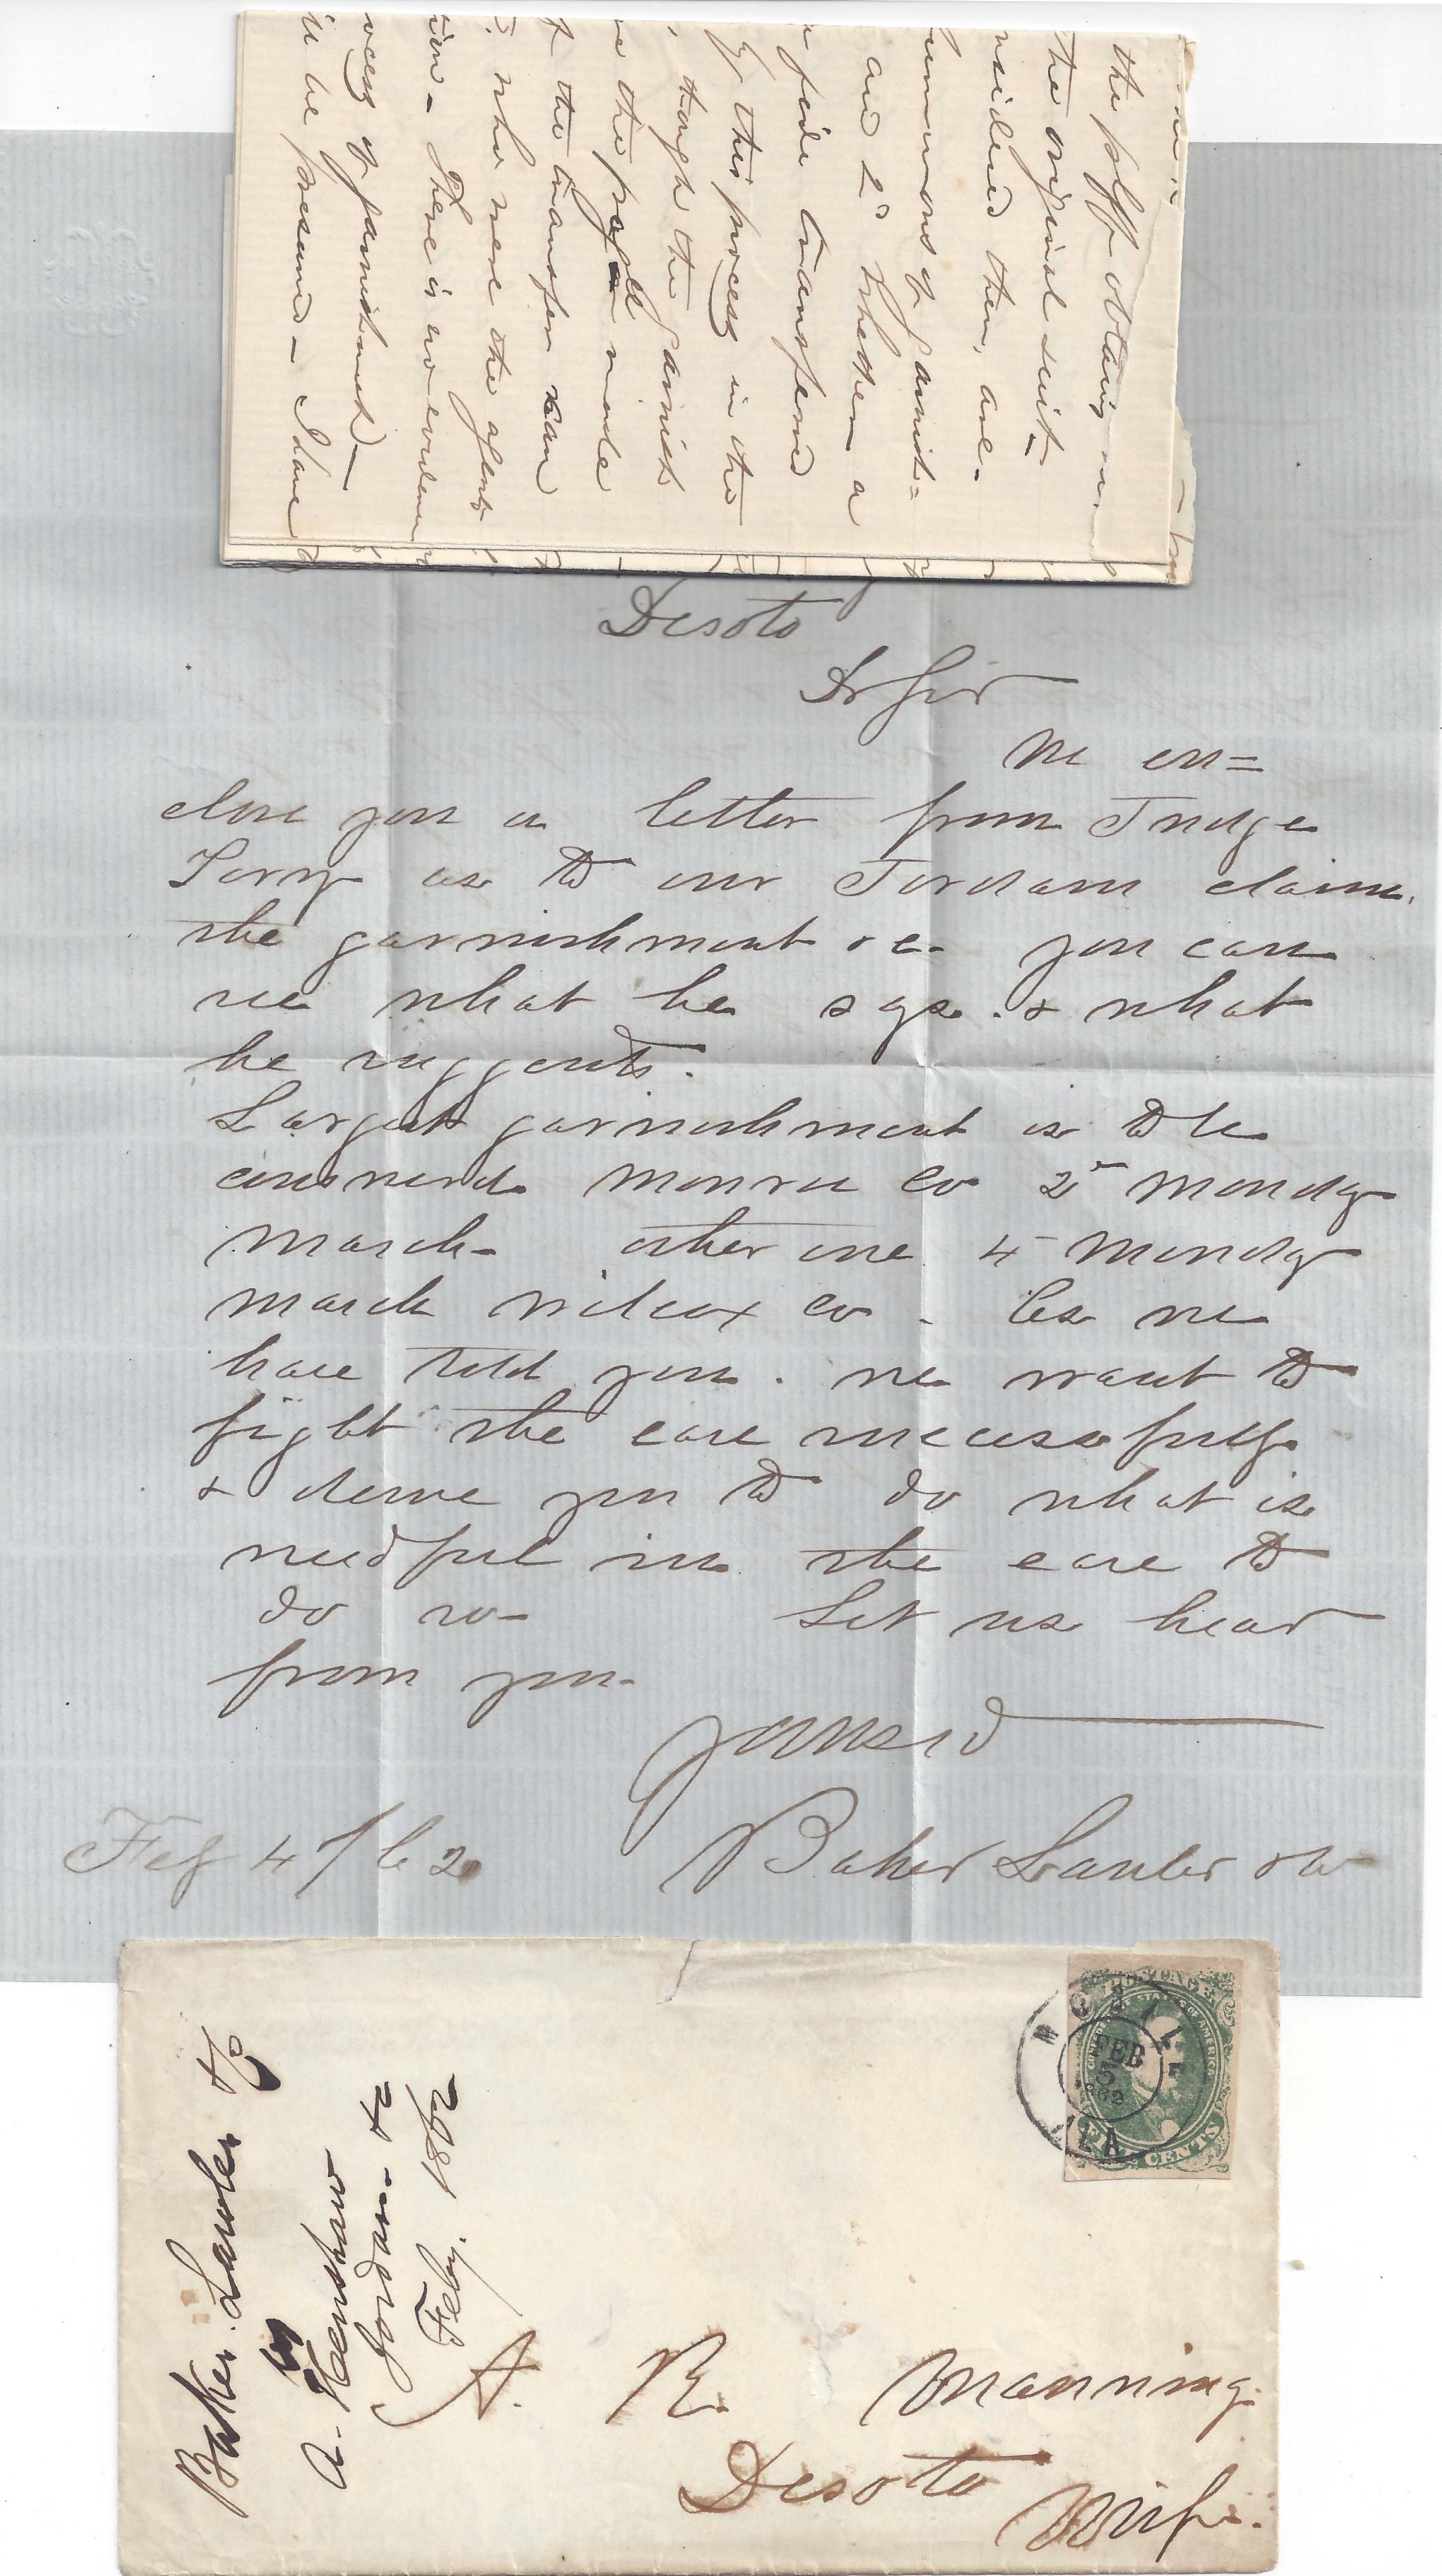 the plff obtain
the original suit -
then, are -
summons of garnish=
and 2d Whether a
fide transferred
by this process in the
, tough the garnish
the paper made
the transfer can
who were the agents
There is no evidence
process of garnishment) -
be presumed - I have
Desoto
Dr Sir
We en=
close you a letter from Judge
Torry as to our Jordan claim.
the garnishment &c - you can
see what he says. & what
he suggests.
Largest garnishment is to be
answered Monroe Co 2d Monday
March - other one 4 Monday
March Wilcox Co - As we
have told you. we want to
fight the case successfully
& desire you to do what is
needful in the case to
do so - Let us hear
from you -
Yours &
Feby 4 / 62
Baker Lawler & Co
Baker Lawler & Co
by
A. Henshaw
Jordan - &c
Feby. 1862
POSTAGE
CONFEDERATE STATES OF AMERICA
FIVE CENTS
MOBILE
FEB
5
1862
ALA
A. R. Manning
Desoto
Missi.